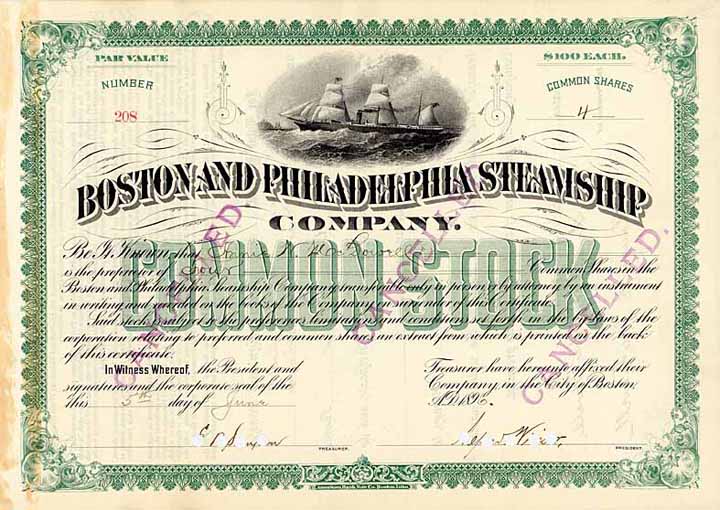 PAR VALUE
$100 EACH.
NUMBER
COMMON SHARES
208
4
BOSTON AND PHILADELPHIA STEAMSHIP
COMPANY.
COMMON STOCK
Be It Known that
is the proprietor of Four Common Shares in the
Boston and Philadelphia Steamship Company, transferable only in person or by attorney by an instrument
in writing and recorded on the books of the Company on surrender of this Certificate.
Said stock is subject to the preferences, limitations and conditions set forth in the by-laws of the
corporation relating to preferred and common shares, an extract from which is printed on the back
of this certificate.
In Witness Whereof, the President and Treasurer have hereunto affixed their
signatures and the corporate seal of the Company, in the City of Boston,
this 5th day of June A.D. 189
TREASURER.
PRESIDENT.
CANCELLED
CANCELLED
CANCELLED.